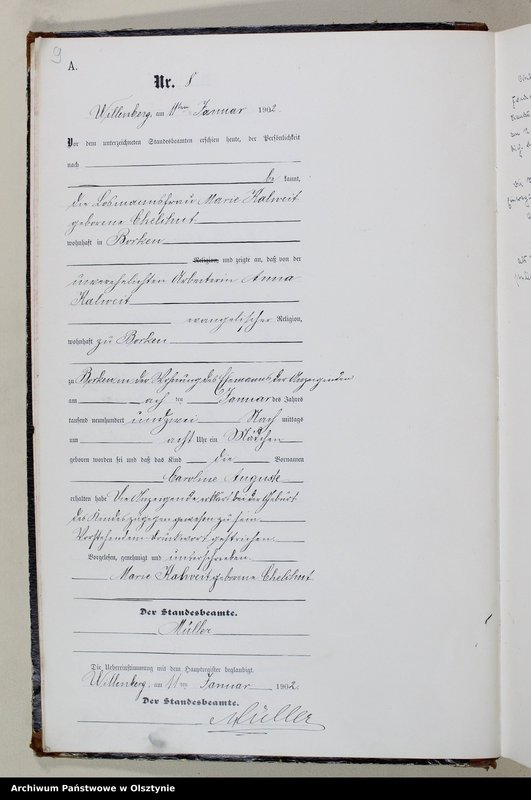 9
A.
Nr. 8
Willenberg, am 11ten Januar 1902.
Vor dem unterzeichneten Standesbeamten erschien heute, der Persönlichkeit
nach
be kannt,
die Losmannsfrau Marie Kalweit
geborene
wohnhaft in Borken
Religion, und zeigte an, daß von der
unverehelichten Arbeiterin Anna
Kalweit
evangelischer Religion,
wohnhaft zu Borken
zu Borken in der Wohnung des Ehemanns der Anzeigenden
am ten Januar des Jahres
tausend neunhundert und zwei Nach mittags
um acht Uhr ein Mädchen
geboren worden sei und daß das Kind die Vornamen
Caroline Auguste
erhalten habe. Die Anzeigende erklärt bei der Geburt
des Kindes zugegen gewesen zu sein.
Vorstehend ein Druckwort gestrichen.
Vorgelesen, genehmigt und unterschrieben.
Marie Kalweit geborene
Der Standesbeamte.
Müller
Die Uebereinstimmung mit dem Hauptregister beglaubigt.
Willenberg, am 11ten Januar 1902.
Der Standesbeamte.
Müller
Archiwum Państwowe w Olsztynie